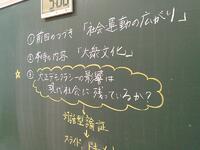 ① 前回のつづき「社会運動の広がり」
② 本時の内容「大衆文化」
☆大正デモクラシーの影響は
現代社会に残っているか?
対話型論証
スライド